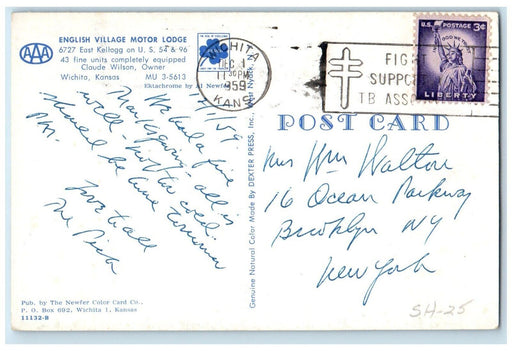 ENGLISH VILLAGE MOTOR LODGE
AAA
6727 East Kellogg on U. S. 54 & 96
43 fine units completely equipped
Claude Wilson, Owner
Wichita, Kansas MU 3-5613
Ektachrome by Al Newfer
WICHITA
DEC 1
11 30 PM
1959
KANS
FIG
SUPPO
TB ASSO
U.S. POSTAGE 3¢
LIBERTY
POST CARD
12/1/59
We had a fine
Thanksgiving - all is
well - not too cold.
Should be home tomorrow
P.M.
Love to all
Genuine Natural Color Made By DEXTER PRESS, Inc.
Mrs Wm Walton
16 Ocean Parkway
Brooklyn NY
New York
Pub. by The Newfer Color Card Co.,
P. O. Box 692, Wichita 1, Kansas
11132-B
SH-25